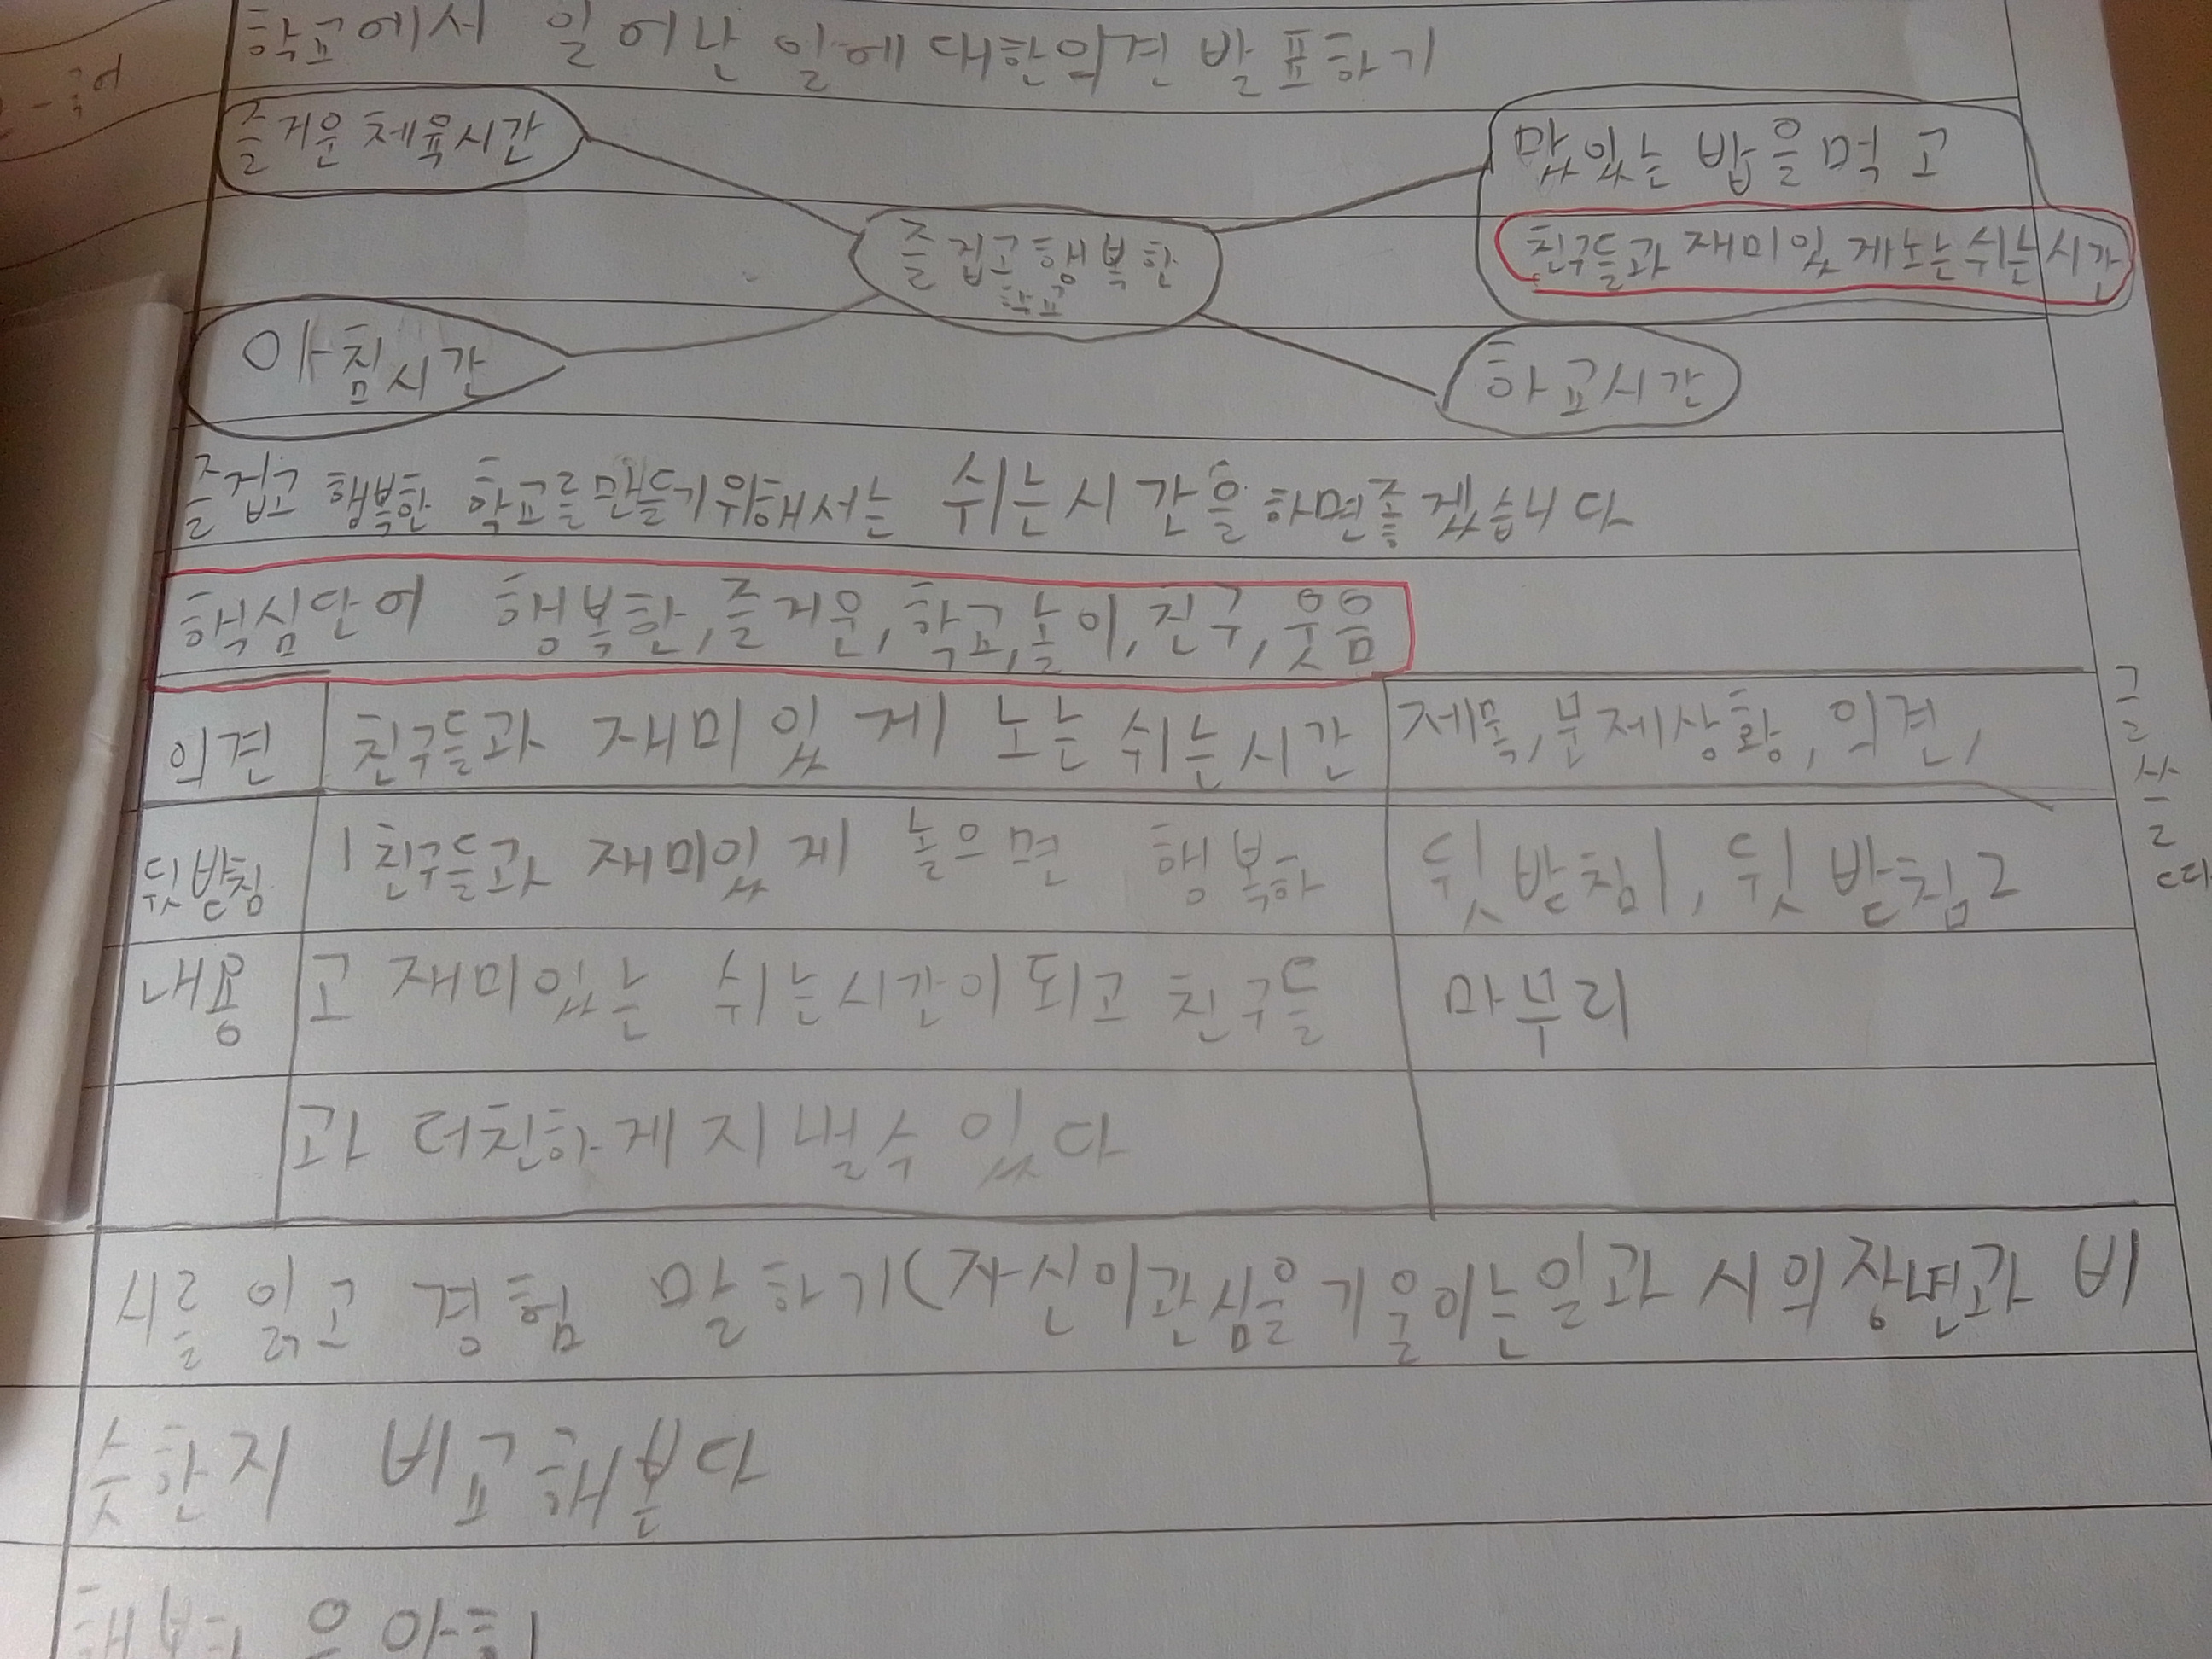 학교에서 일어난 일에 대한의견 발표하기
즐거운 체육시간
맜있는 밥을 먹고
친구들과 재미있게노는 쉬는시간
즐겁고 행복한
학교
아침시간
하교시간
즐겁고 행복한 학교를만들기위해서는 쉬는시간을하면좋겠습니다
핵심단어 행복한, 즐거운, 학교, 놀이, 친구, 웃음
의견 친구들과 재미있게 노는 쉬는시간 제목, 문제상황, 의견,
뒷받침 1 친구들과 재미있게 놀으면 행복하 뒷받침1, 뒷받침2
내용 고 재미있는 쉬는시간이되고 친구들 마무리
과 더친하게지낼수 있다
글 쓸 때
시를 읽고 경험 말하기(자신이관심을기울이는일과 시의장면과 비
슷한지 비교해본다